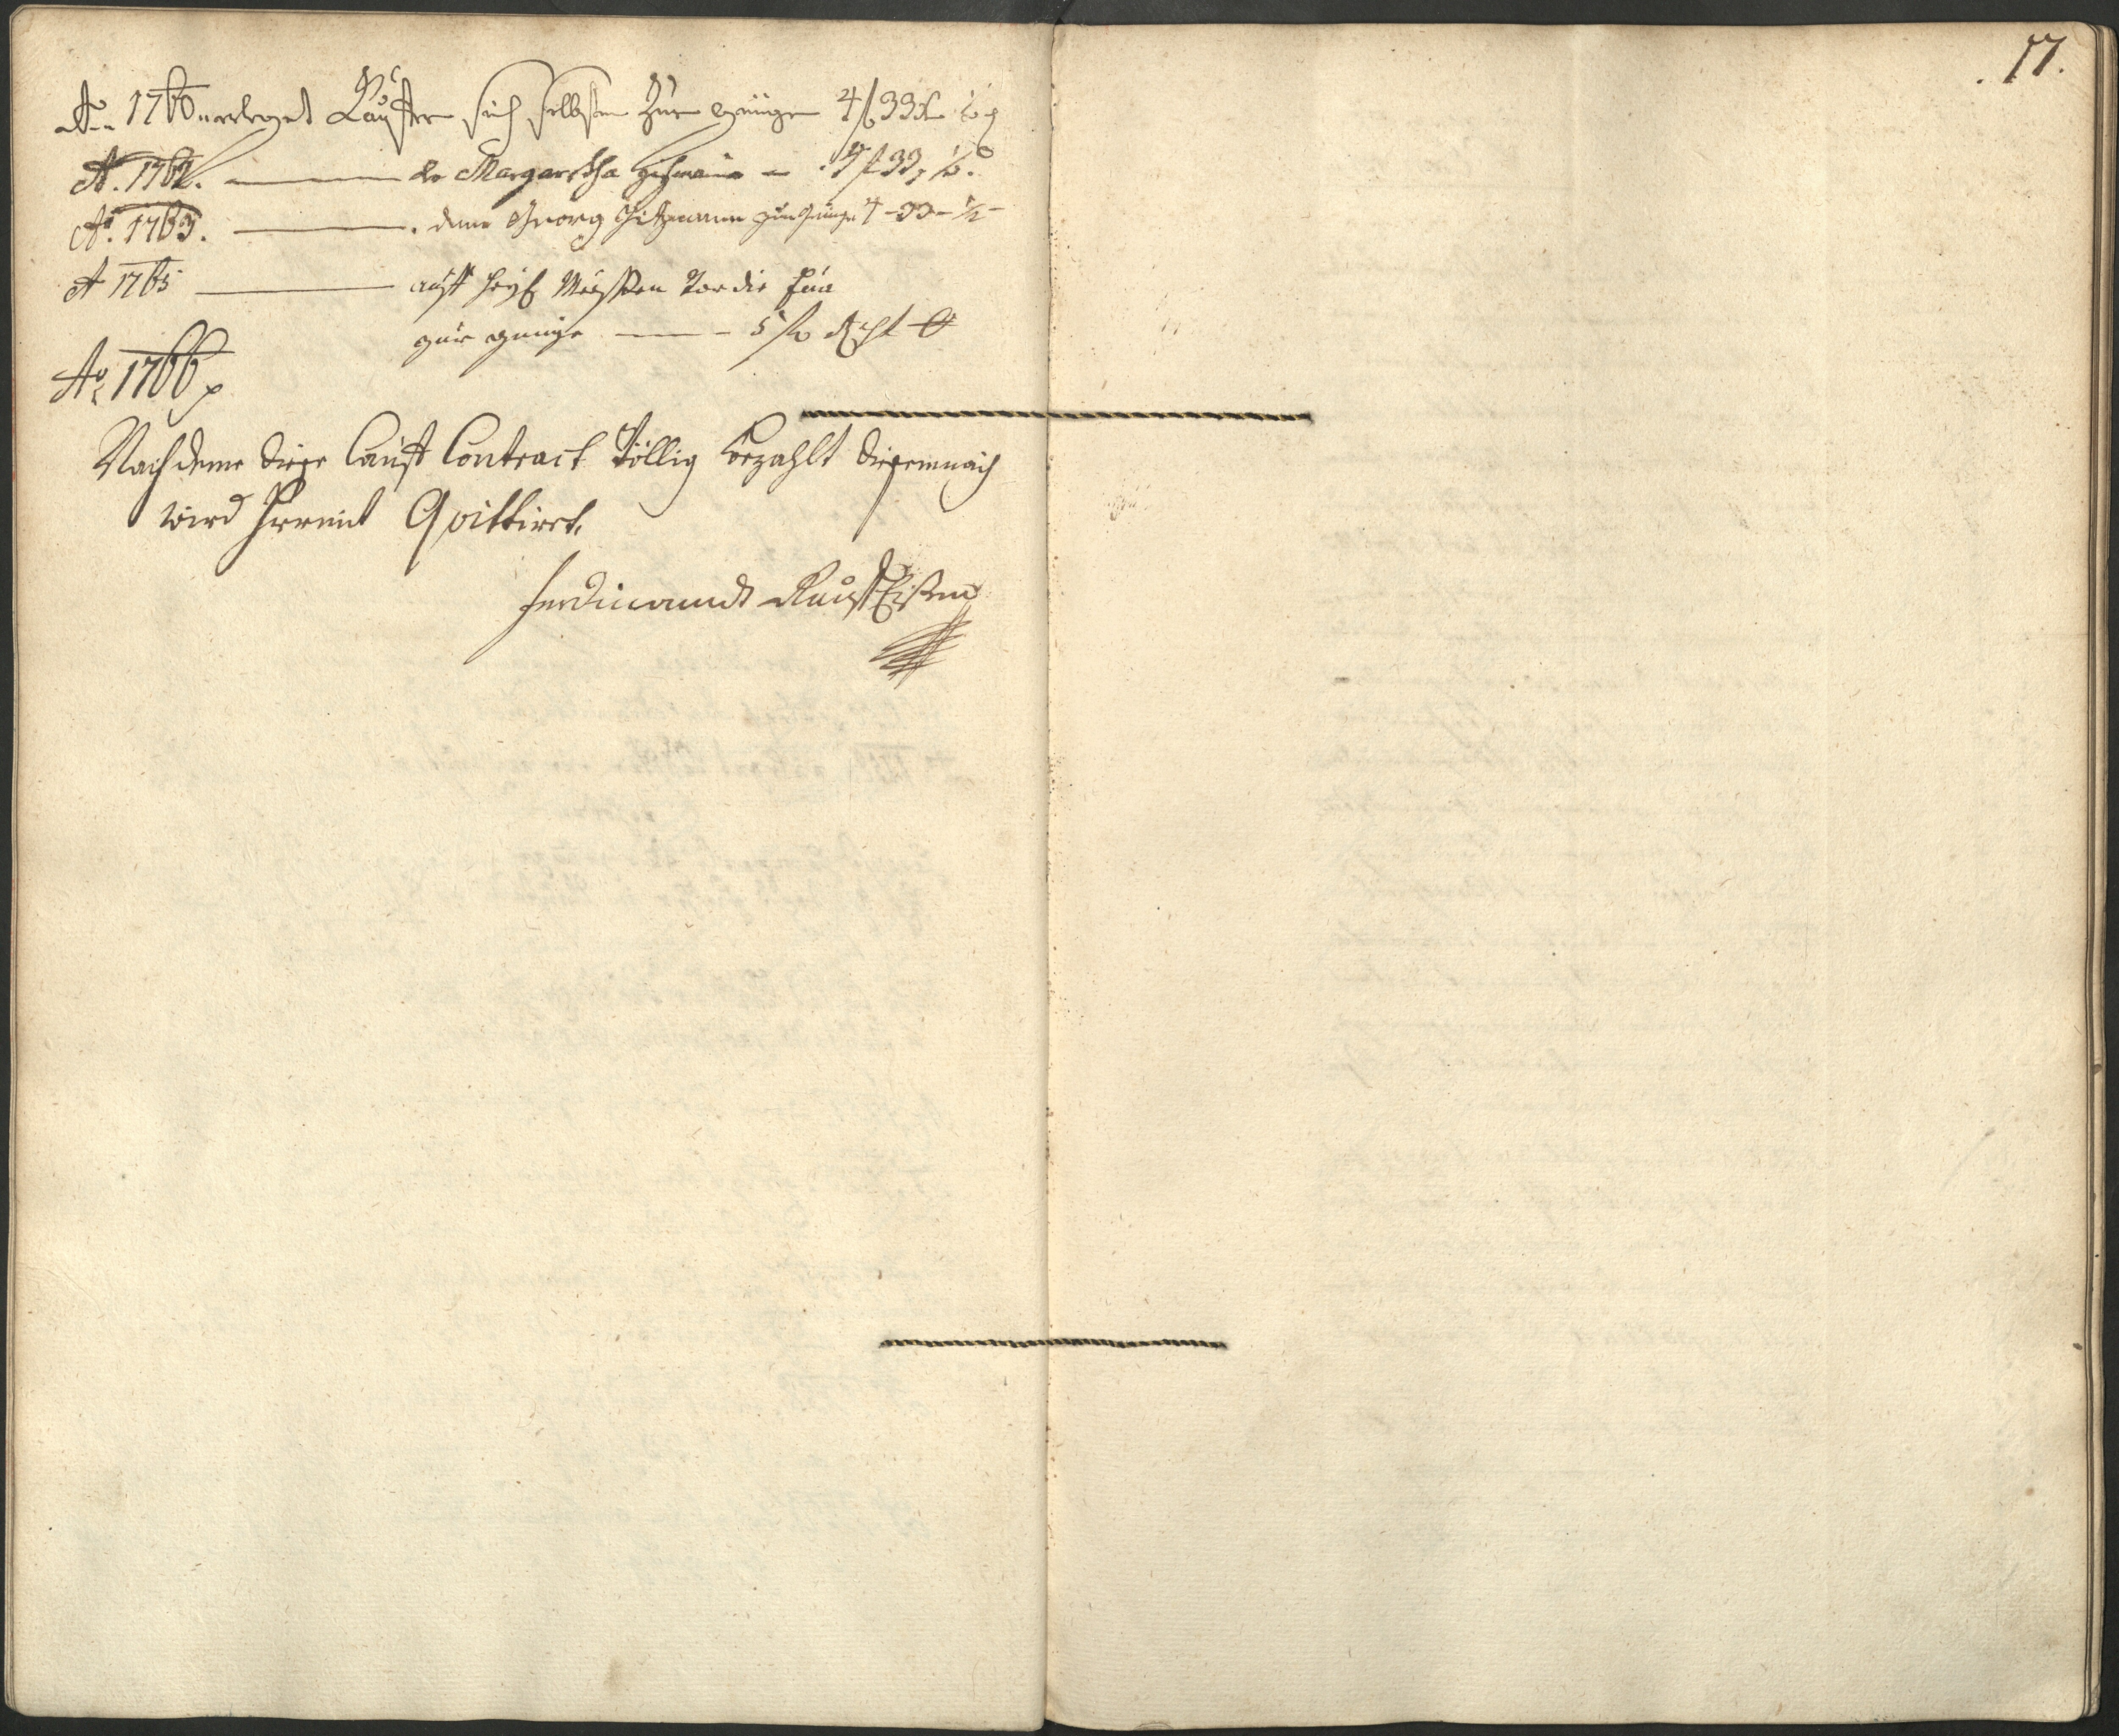 Ao 1760 erleget Kauffer sich selbsten Zur genüge 4 f 33 xr ½ d
Ao. 1762. der Margaretha 4 f 33, ½ d.
Ao. 1763. dem Georg zur genüge 4 - 33 - ½
A 1765 auff heyl Messen vor die
zur genüge 5 f
Ao 1766
Nach deme dieser Cauff Contract völlig bezahlt diesemnach
wird hiemit Quittiret.
Ferdinandt
17.